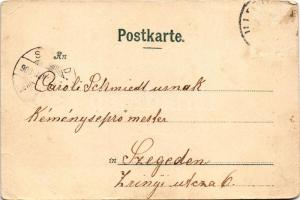 Postkarte.
An
Caroli Schmiedt urnak
Kéményseprő mester
in Szegeden
Zrinyi utcza 6.